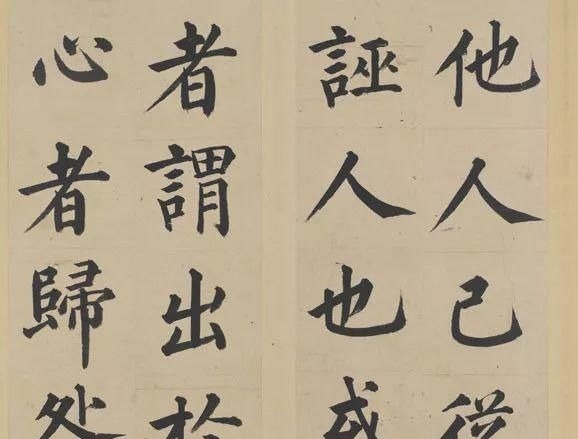 他人己從
誣人也或
者謂出於
心者歸咎